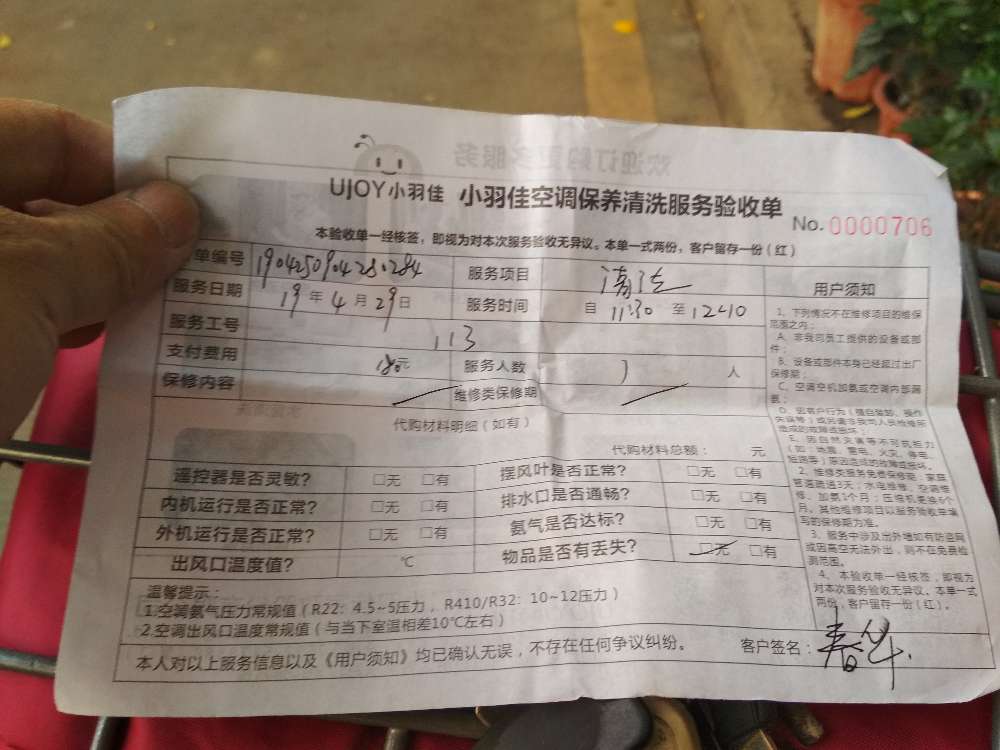 欢迎订购更多服务
UJOY小羽佳 小羽佳空调保养清洗服务验收单
No. 0000706
本验收单一经核签，即视为对本次服务验收无异议。本单一式两份，客户留存一份（红）
单编号 1904250904280284 服务项目 清洗
服务日期 19年4月29日 服务时间 自 11:30 至 12:10
服务工号 113
支付费用 180元 服务人数 1 人
保修内容 维修类保修期
代购材料明细（如有）
代购材料总额： 元
遥控器是否灵敏？ □无 □有 摆风叶是否正常？ □无 □有
内机运行是否正常？ □无 □有 排水口是否通畅？ □无 □有
外机运行是否正常？ □无 □有 氨气是否达标？ □无 □有
出风口温度值？ ℃ 物品是否有丢失？ □无 □有
温馨提示：
1.空调氨气压力常规值（R22：4.5~5压力，R410/R32：10~12压力）
2.空调出风口温度常规值（与当下室温相差10℃左右）
本人对以上服务信息以及《用户须知》均已确认无误，不存在任何争议纠纷。
客户签名：
用户须知
1、下列情况不在维修项目的维保
范围之内：
A、非我司员工提供的设备或部
件；
B、设备或部件本身已经超过出厂
保修期；
C、空调空机加氨或空调内部漏
氨；
D、因客户行为（擅自装卸、操作
失误等）或因非我司人员检修所
造成的故障或损坏；
E、因自然灾害等不可抗拒力
（如：地震、雷电、火灾、停电、
短路等）原因造成的故障或损坏。
2、维修类服务免费保修期：家庭
管道疏通3天；水电维修、空调维
修、加氨1个月；压缩机更换6个
月。其他维修项目以服务验收单填
写的保修期为准。
3、服务中涉及出外墙如有防盗网
或因高空无法外出，则不在免费检
测范围。
4、本验收单一经核签，即视为
对本次服务验收无异议。本单一式
两份，客户留存一份（红）。